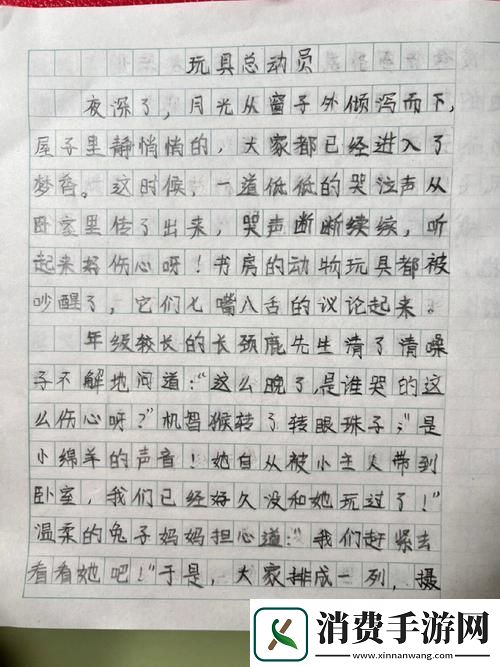 玩具总动员
夜深了，月光从窗子外倾泻而下，
屋子里静悄悄的，大家都已经进入了
梦香。这时候，一道低低的哭泣声从
卧室里传了出来，哭声断断续续，听
起来好伤心呀！书房的动物玩具都被
吵醒了，它们七嘴八舌的议论起来。
年级较长的长颈鹿先生清了清嗓
子不解地问道：“这么晚了，是谁哭的这
么伤心呀？”机智猴转了转眼珠子：“是
小绵羊的声音！她自从被小主人带到
卧室，我们已经好久没和她玩过了！”
温柔的兔子妈妈担心道：“我们赶紧去
看看她吧！”于是，大家排成一列，摄
消费手游网
www.xinnanwang.com